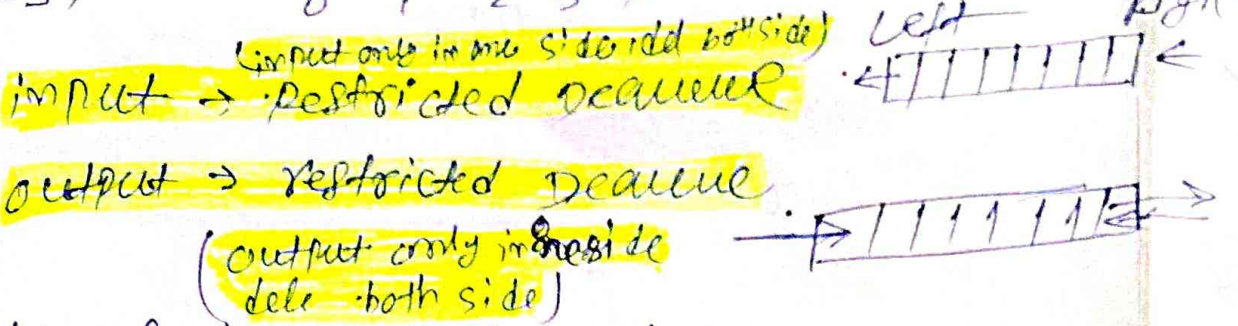 Left
(input only in one side add both side)
input → Restricted Deaueue
output → restricted Deaueue
(output only in one side
dele both side)